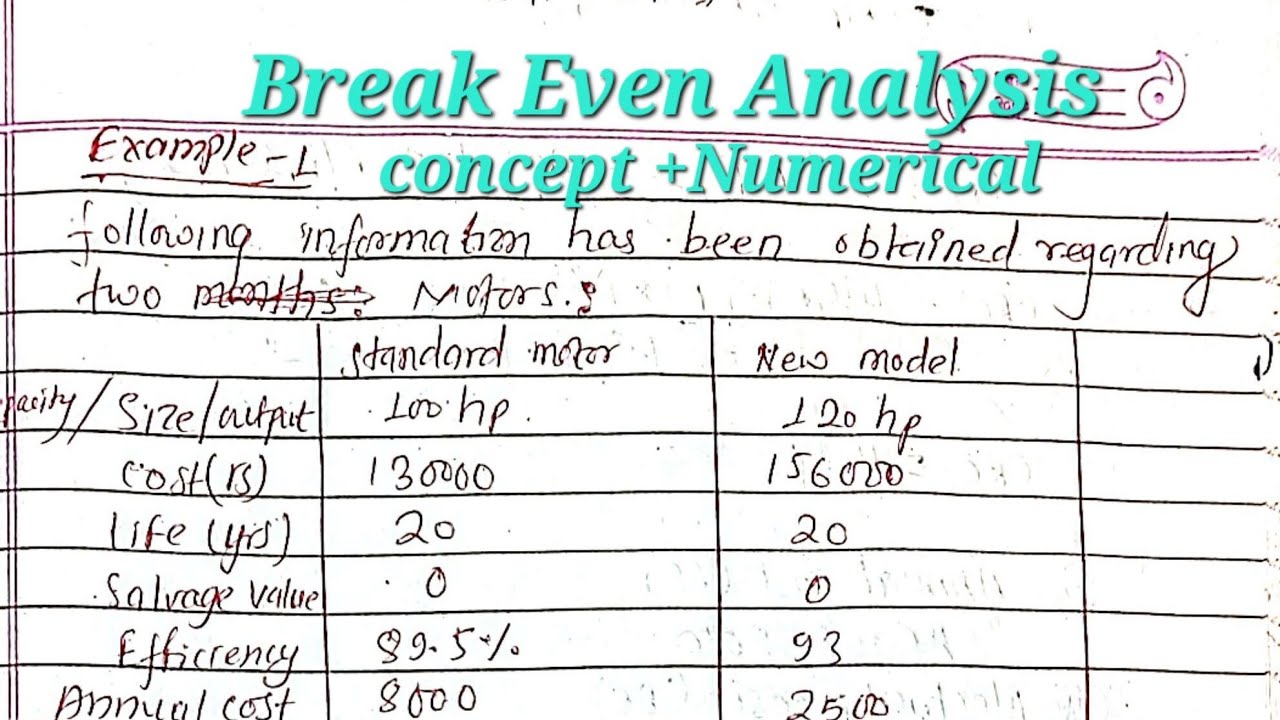 Break Even Analysis
concept +Numerical
Example-1
following information has been obtained regarding
two Motors:
Standard motor New model
pacity/Size/output 100 hp. 120 hp
cost(rs) 130000 156000
Life (yrs) 20 20
Salvage value 0 0
Efficiency 89.5% 93
Annual cost 8000 2500